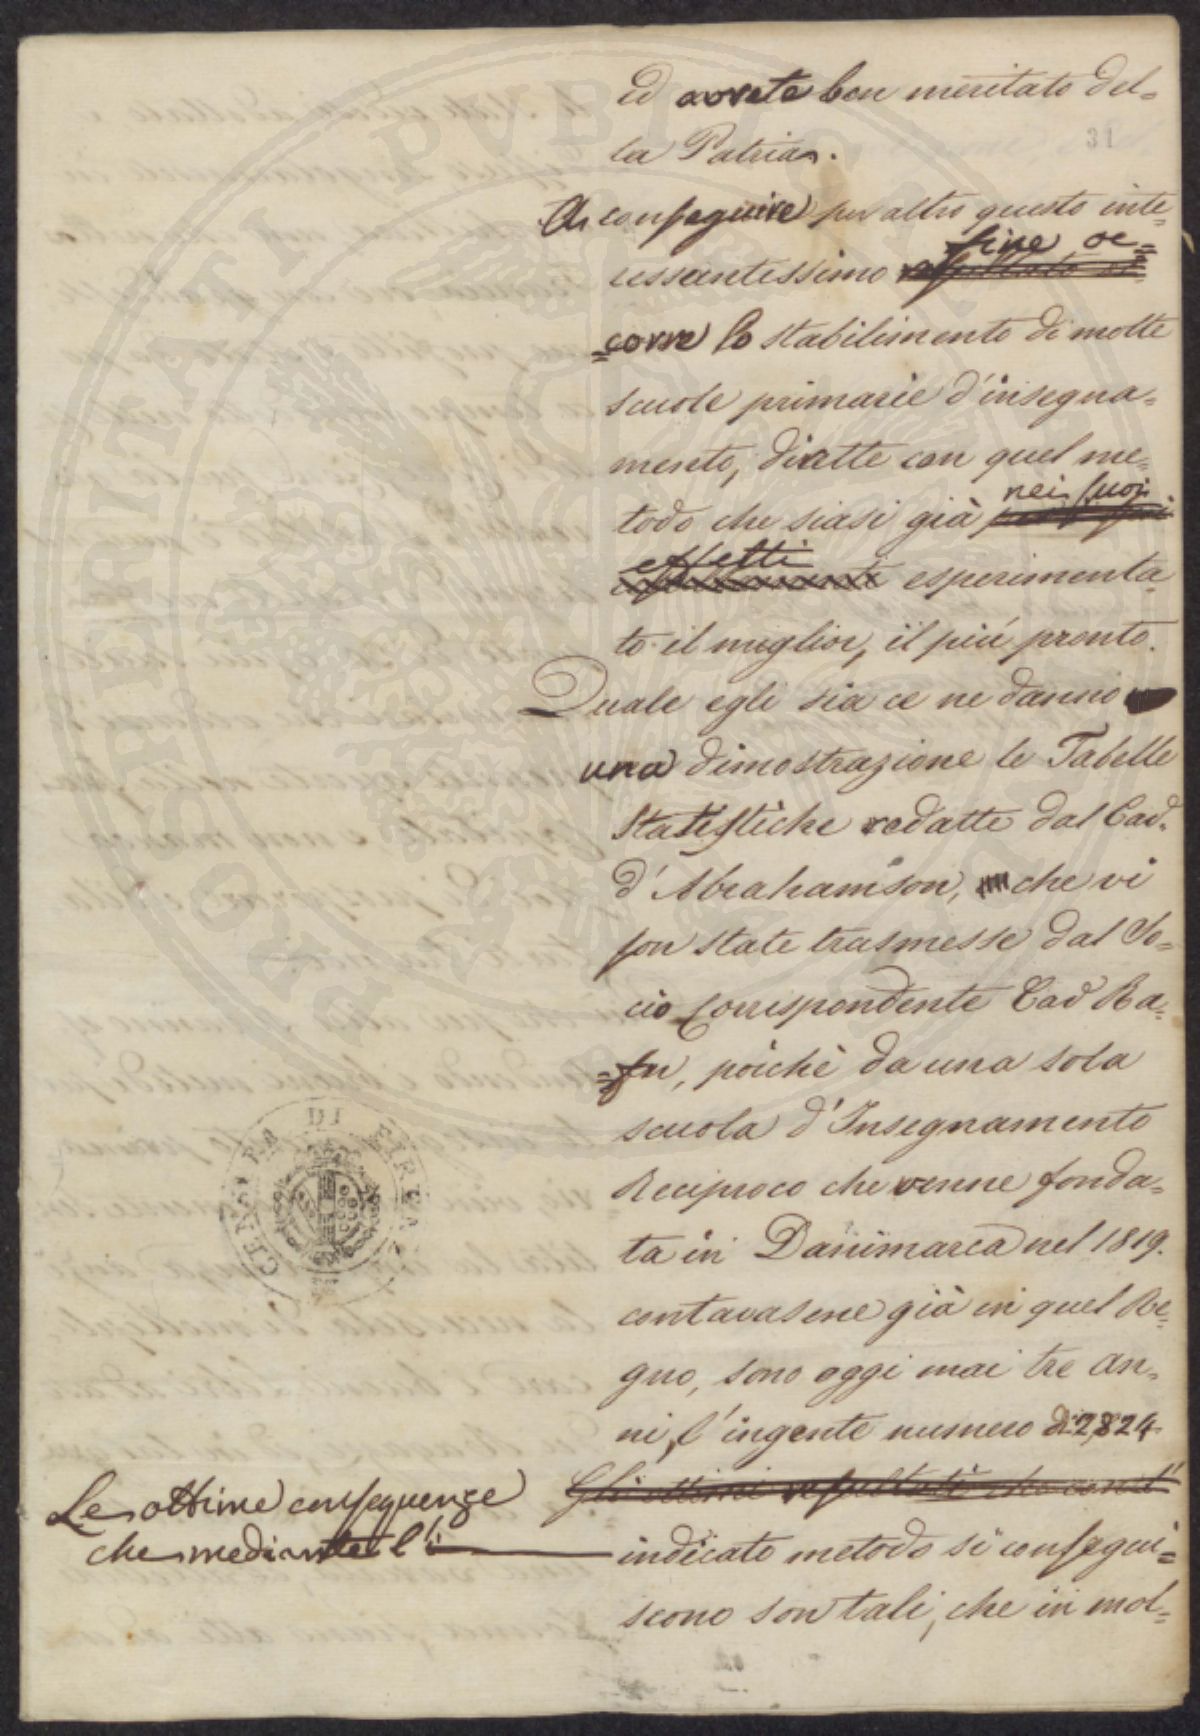 ed avrete ben meritato del=
la Patria.
31
A conseguire per altro questo inte=
ressantissimo fine oc=
=corre lo stabilimento di molte
scuole primarie d'insegna=
mento, dirette con quel me=
todo che siasi già nei suoi
effetti esperimenta=
to il miglior, il più pronto.
Quale egli sia ce ne danno
una dimostrazione le Tabelle
Statistiche redatte dal Cav.
d'Abrahamson, che vi
son state trasmesse dal So=
cio Corrispondente Cav Ra=
=fn, poichè da una sola
scuola d'Insegnamento
Reciproco che venne fonda=
ta in Danimarca nel 1819.
contavasene già in quel Re=
gno, sono oggi mai tre an=
ni, l'ingente numero di 2,824
Gli ottimi resultati che con l'
Le ottime conseguenze
che mediante l'
indicato metodo si consegui=
scono son tali, che in mol=
PROSPERITATI PVBLICAE